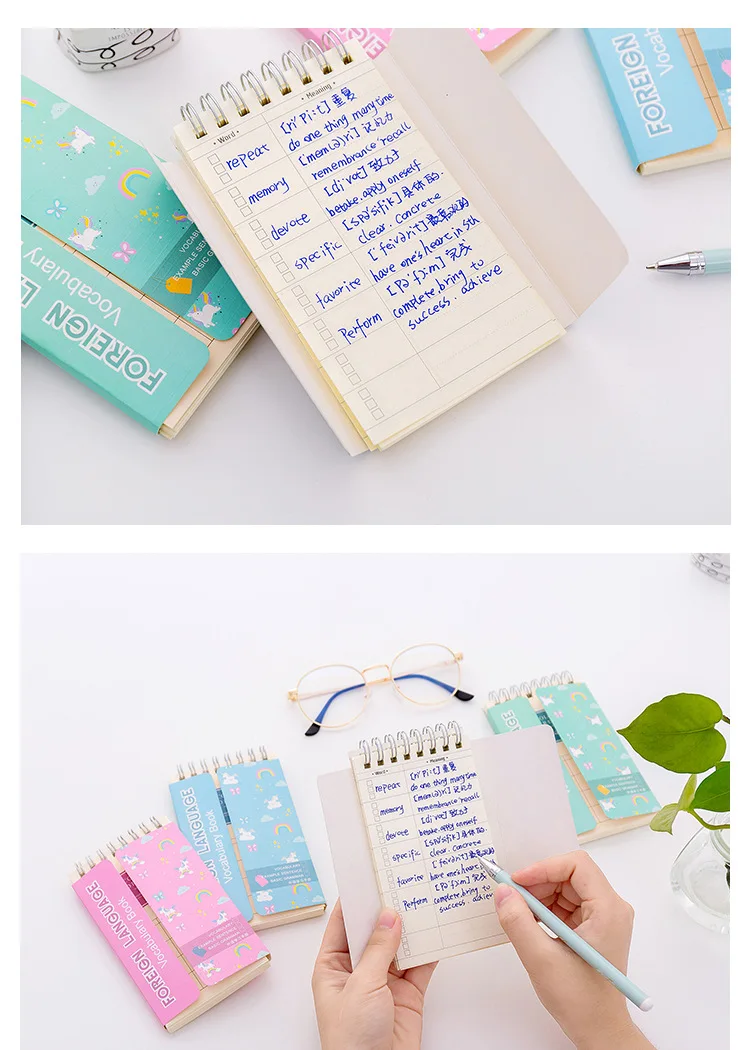 FOREIGN
Vocabulary
FOREIGN
Vocabulary
VOCABULARY
EXAMPLE
BASIC
• Word •
• Meaning •
repeat
[ri'Pi:t] 重复
do one thing many time
memory
[mem(ə)ri] 记忆力
remembrance recall
devote
[di'vot] 致力于
betake.apply oneself
specific
[spə'sifik] 具体的.
clear. concrete
favorite
['feivərit] 最喜欢的
have one's heart in sth
Perform
[Pə'fɔ:m] 完成
complete.bring to
success. achieve
FOREIGN LANGUAGE
Vocabulary Book
LANGUAGE
Vocabulary Book
• Word •
• Meaning •
repeat
[ri'Pi:t] 重复
do one thing many time
memory
[mem(ə)ri] 记忆力
remembrance recall
devote
[di'vot] 致力于
betake.apply oneself
specific
[spə'sifik] 具体的
clear. concrete
favorite
['feivərit]
have one's heart in
Perform
[Pə'fɔ:m] 完成
complete.bring to
success. achieve